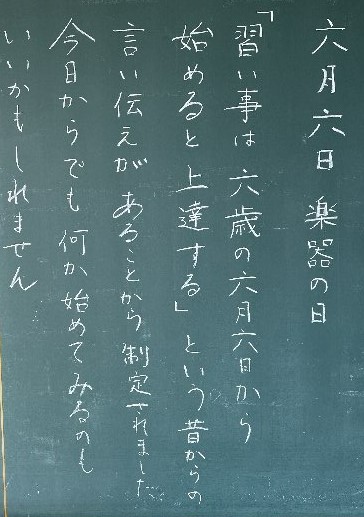 六月六日 楽器の日
「習い事は六歳の六月六日から
始めると上達する」という昔からの
言い伝えがあることから制定されました
今日からでも何か始めてみるのも
いいかもしれません